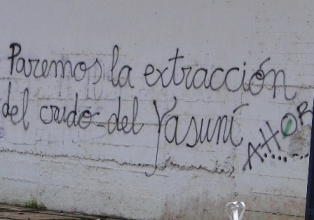 Paremos la extracción
del crudo del Yasuní
AHOR